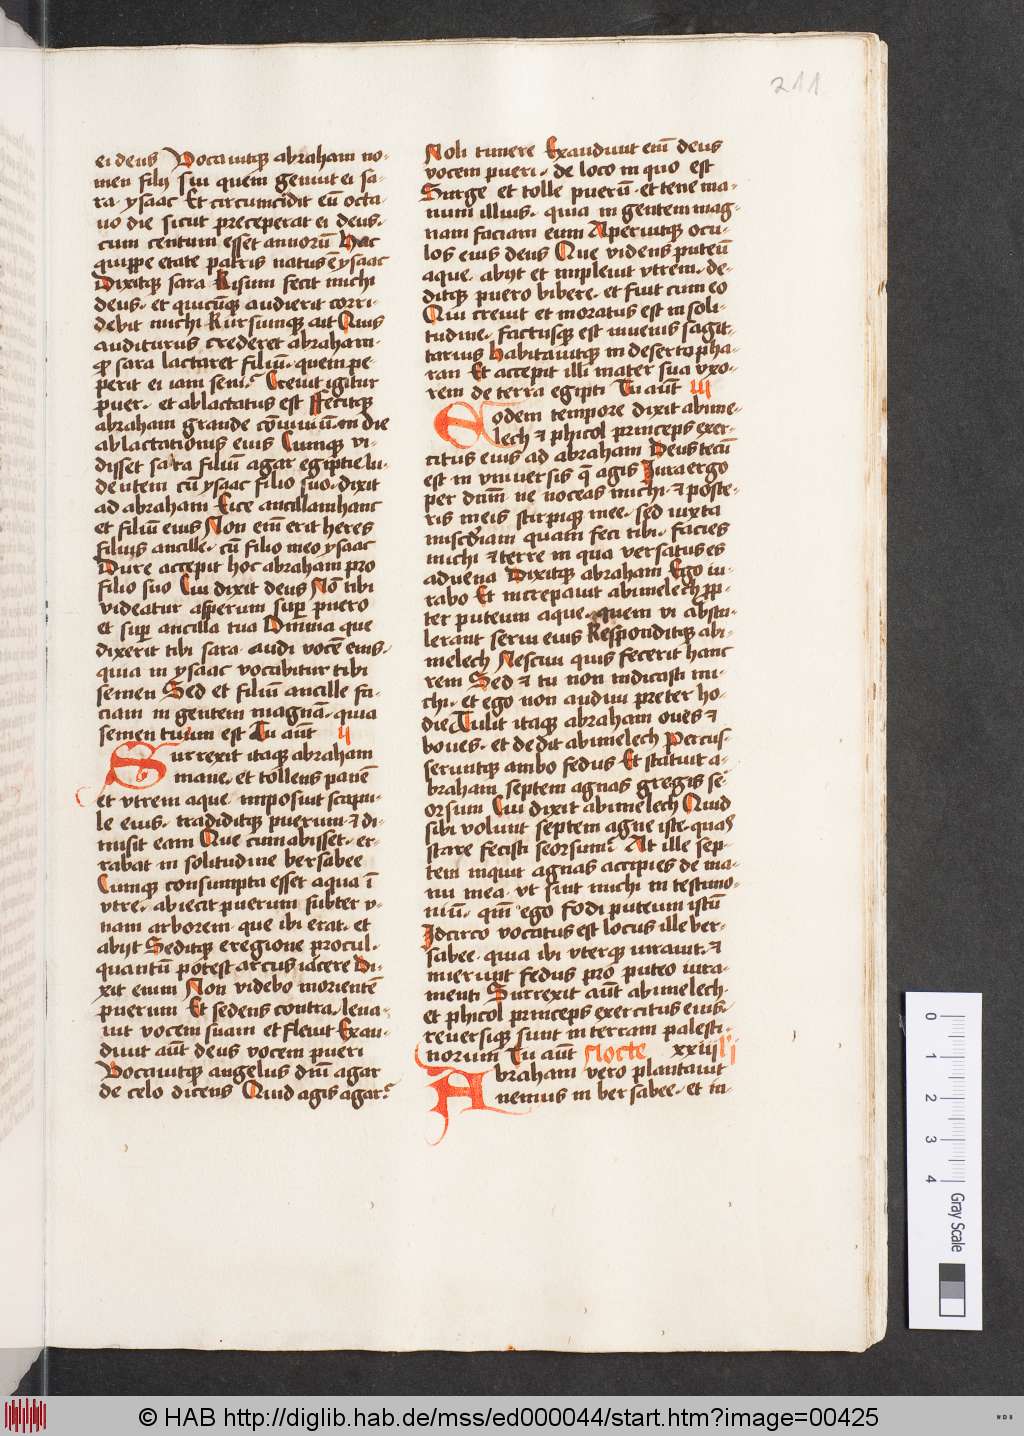 211
ei deus Vocauitqꝫ abraham no-
men filij sui quem genuit ei sa-
ra ysaac Et circumcidit eū octa-
uo die sicut preceperat ei deus.
cum centum esset annorū Hac
quippe etate patris natus ē ysaac
Dixitqꝫ sara Risum fecit michi
deus. et quicūqꝫ audierit corri-
debit michi Rursumqꝫ ait Quis
auditurus crederet abraham.
ꝙ sara lactaret filiū. quem pe
perit ei iam seni. Creuit igitur
puer. et ablactatus est Fecitqꝫ
abraham grande cōuiuiū in die
ablactationis eius Cumqꝫ vi-
disset sara filiū agar egiptie lu-
dentem cū ysaac filio suo. dixit
ad abraham Eice ancillam hanc
et filiū eius Non em̄ erit heres
filius ancille. cū filio meo ysaac
Dure accepit hoc abraham pro
filio suo Cui dixit deus Nō tibi
videatur asperum suꝑ puero
et suꝑ ancilla tua Omnia que
dixerit tibi sara audi vocē eius.
quia in ysaac vocabitur tibi
semen Sed et filiū ancille fa-
ciam in gentem magnā. quia
semen tuum est Tu aūt ij
Surrexit itaqꝫ abraham
mane. et tollens panē
et vtrem aque. imposuit scapu-
le eius. tradiditqꝫ puerum. ⁊ di-
misit eam Que cum abisset. er-
rabat in solitudine bersabee
Cumqꝫ consumpta esset aqua ī
vtre. abiecit puerum subter v-
nam arborem. que ibi erat. et
abijt Seditqꝫ e regione procul.
quantū potest arcus iacere Di-
xit enim Non videbo morientē
puerum Et sedens contra. leua-
uit vocem suam et fleuit Exau-
diuit aūt deus vocem pueri
Vocauitqꝫ angelus dn̄i agar
de celo dicens Quid agis agar?
Noli timere Exaudiuit em̄ deus
vocem pueri. de loco in quo est
Surge et tolle puerū. et tene ma-
num illius. quia in gentem mag-
nam faciam eum Aperuitqꝫ ocu-
los eius deus Que videns puteū
aque. abijt et impleuit vtrem. de-
ditqꝫ puero bibere. et fuit cum eo
Qui creuit et moratus est in soli-
tudine. factusqꝫ est iuuenis sagit-
tarius Habitauitqꝫ in deserto pha-
ran Et accepit illi mater sua vxo-
rem de terra egipti Tu aūt iij
Eodem tempore dixit abime-
lech ⁊ phicol princeps exer-
citus eius ad abraham Deus tecū
est in vniuersis q̄ agis Iura ergo
per dn̄m ne noceas michi. ⁊ poste-
ris meis stirpiqꝫ mee. sed iuxta
mis̄c̄diam quam feci tibi. facies
michi ⁊ terre in qua versatus es
aduena Dixitqꝫ abraham Ego iu-
rabo Et increpauit abimelech ꝓp-
ter puteum aque. quem vi abstu-
lerant serui eius Responditqꝫ abi-
melech Nesciui quis fecerit hanc
rem Sed ⁊ tu non indicasti mi-
chi. et ego non audiui preter ho-
die Tulit itaqꝫ abraham oues ⁊
boues. et dedit abimelech Percus-
seruntqꝫ ambo fedus Et statuit a-
braham septem agnas gregis se-
orsum Cui dixit abimelech Quid
sibi volunt septem agne iste. quas
stare fecisti seorsum? At ille sep-
tem inquit agnas accipies de ma-
nu mea. vt sint michi in testimo-
niū. qm̄ ego fodi puteum istū
Idcirco vocatus est locus ille ber-
sabee. quia ibi vterqꝫ iurauit. ⁊
inierunt fedus pro puteo iura-
menti Surrexit aūt abimelech.
et phicol princeps exercitus eius.
reuersiqꝫ sunt in terram palesti-
norum Tu aūt Nocte xxiij lº j
Abraham vero plantauit
nemus in bersabee. et in-
0 1 2 3 4 Gray Scale
© HAB http://diglib.hab.de/mss/ed000044/start.htm?image=00425
WDB